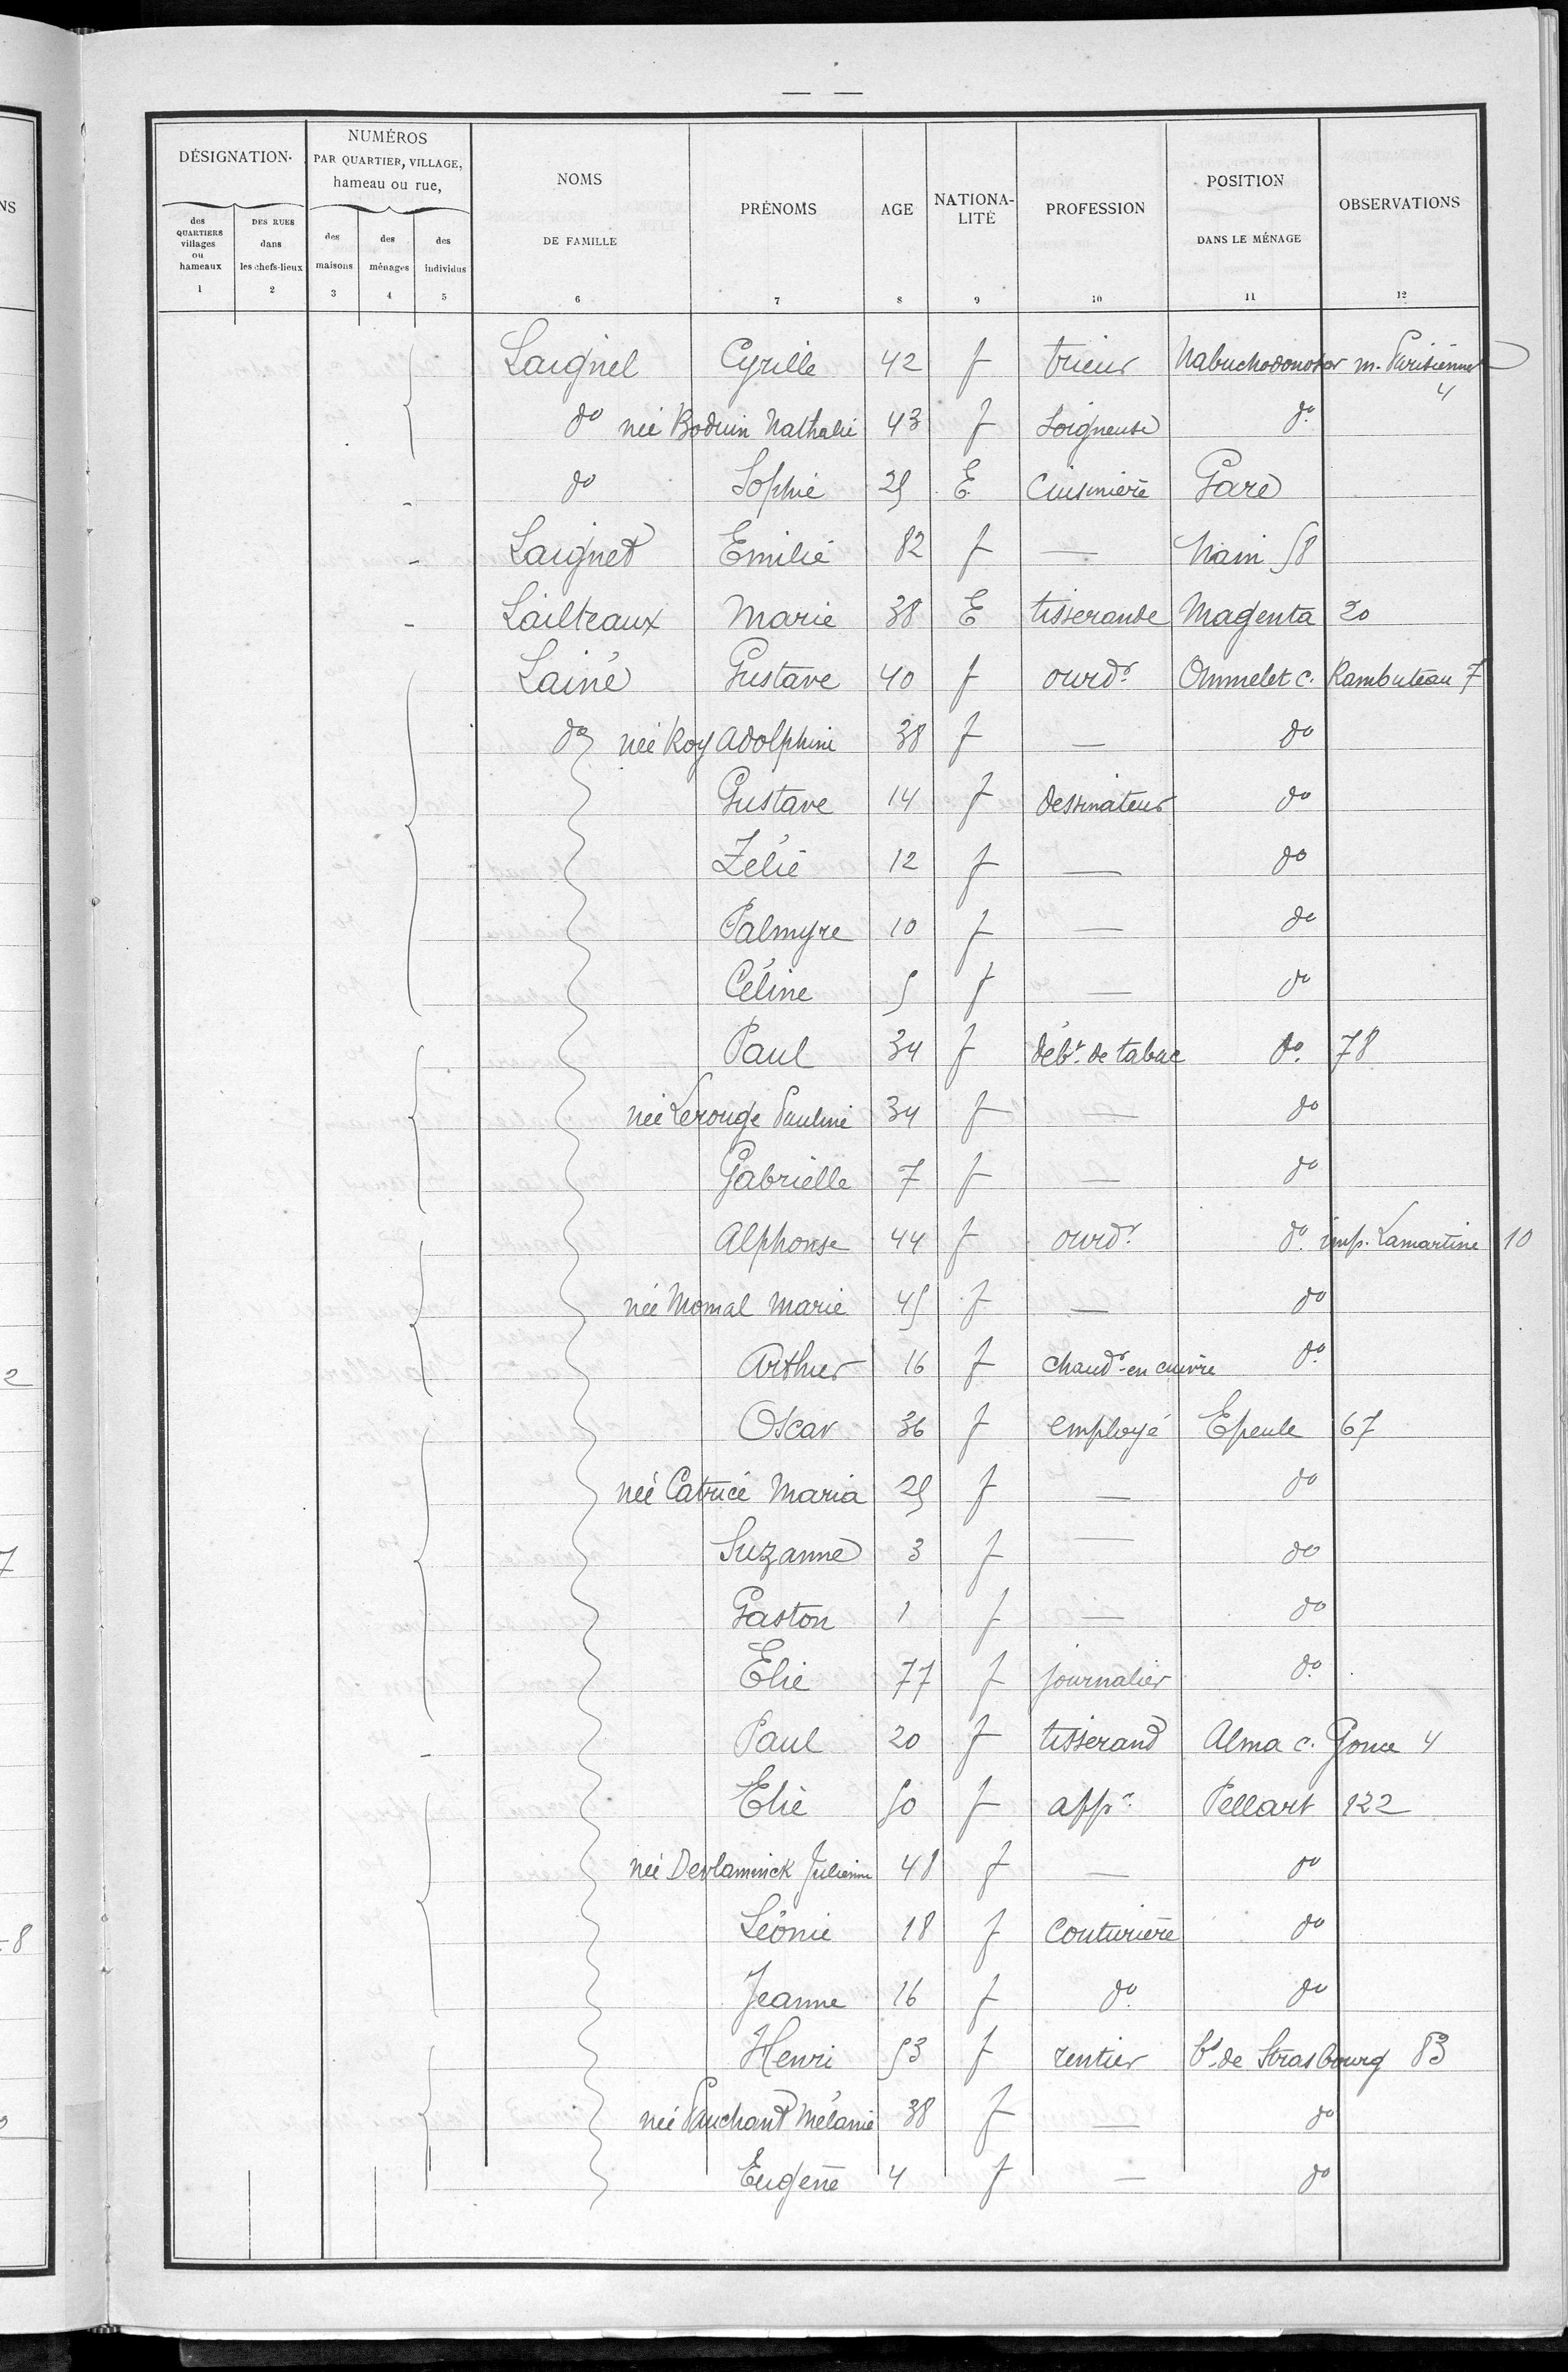 — —
DÉSIGNATION
NUMÉROS PAR QUARTIER, VILLAGE, hameau ou rue,
NOMS DE FAMILLE
PRÉNOMS
AGE
NATIONALITÉ
PROFESSION
POSITION DANS LE MÉNAGE
OBSERVATIONS
des QUARTIERS villages ou hameaux
DES RUES dans les chefs-lieux
des maisons
des ménages
des individus
1 2 3 4 5 6 7 8 9 10 11 12
Laignel Cyrille 42 f trieur Nabuchodonosor m. Parisienne 4
do née Boduin Nathalie 43 f Soigneuse do
do Sophie 25 E. Cuisinière Gare
Laignet Emilie 82 f — Nain 58
Lailteaux Marie 38 E tisserande Magenta 20
Lainé Gustave 40 f ourdr Ommelet c. Rambuteau 7
do née Roy Adolphine 38 f — do
Gustave 14 f dessinateur do
Zélie 12 f — do
Palmyre 10 f — do
Céline 5 f — do
Paul 34 f débt. de tabac do. 78
née Lerouge Pauline 34 f — do
Gabrielle 7 f — do
Alphonse 44 f ourdr do. imp. Lamartine 10
née Momal Marie 45 f — do
Arthur 16 f chaudr en cuivre do
Oscar 36 f employé Epeule 67
née Catrice Maria 25 f — do
Suzanne 3 f — do
Gaston 1 f — do
Élie 77 f journalier do
Paul 20 f tisserand Alma c. 4
Elie 50 f appr Pellart 122
née Devlaminck Julienne 48 f — do
Léonie 18 f Couturière do
Jeanne 16 f do do
Henri 53 f rentier bd. de Strasbourg 83
née Pauchant Mélanie 38 f — do
Eugène 4 f — do